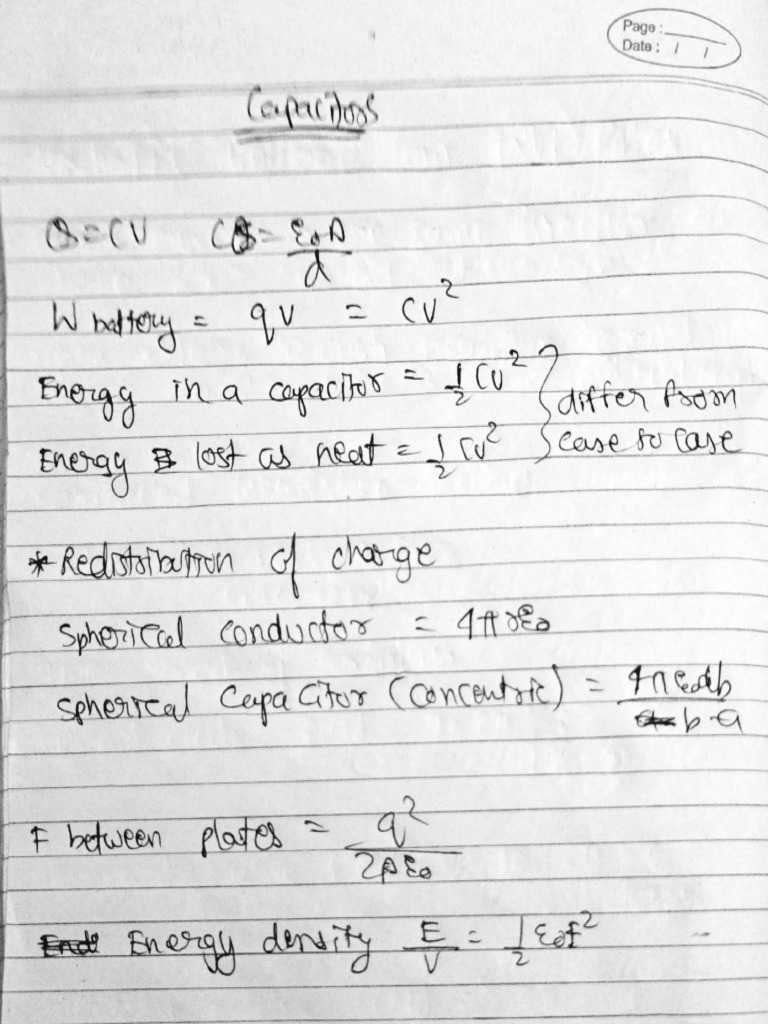 Page :
Date : / /
Capacitors
Q=CV C = ε₀A/d
W battery = qv = CV²
Energy in a capacitor = 1/2 CV² } differ from
Energy lost as heat = 1/2 CV² } case to case
* Redistribution of charge
Spherical conductor = 4πrε₀
Spherical Capacitor (concentric) = 4πε₀ab/b-a
F between plates = q²/2Aε₀
Energy density E/V = 1/2 ε₀E²